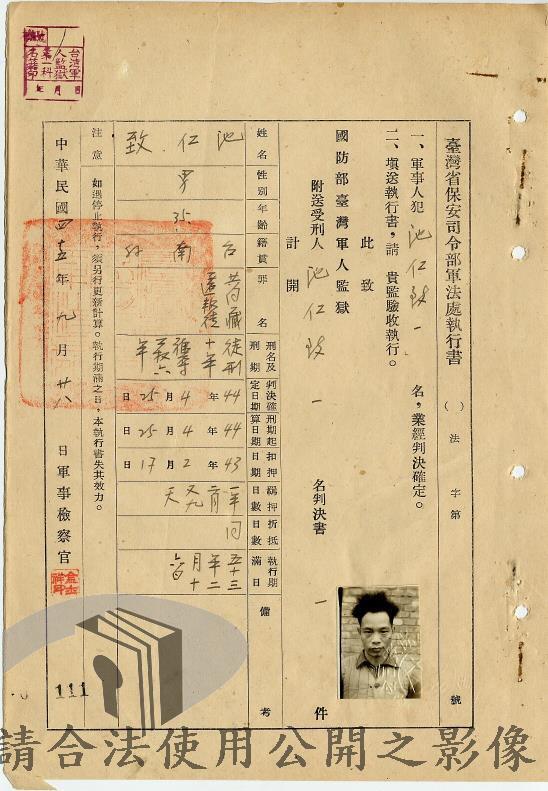 臺灣省保安司令部軍法處執行書
( ) 法字第 號
一、軍事人犯 池仁致 一 名，業經判決確定。
二、填送執行書，請 貴監驗收執行。
此致
國防部臺灣軍人監獄
附送受刑人 池仁致 一 名判決書 一 件
計開
姓名 性別 年齡 籍貫 罪名 刑名及刑期 判決確定日期 刑期起算日期 扣押日期 羈押日數 折抵日數 執行期滿日 備考
池仁致
男
35
台南
徒刑十年
44年4月25日
44年4月25日
43年2月17日
同
注意 如遇停止執行，須另行更新計算。執行期滿之日，本執行書失其效力。
中華民國四十五年九月廿八日軍事檢察官
台灣軍人監獄第一科
年 月 日
111
請合法使用公開之影像